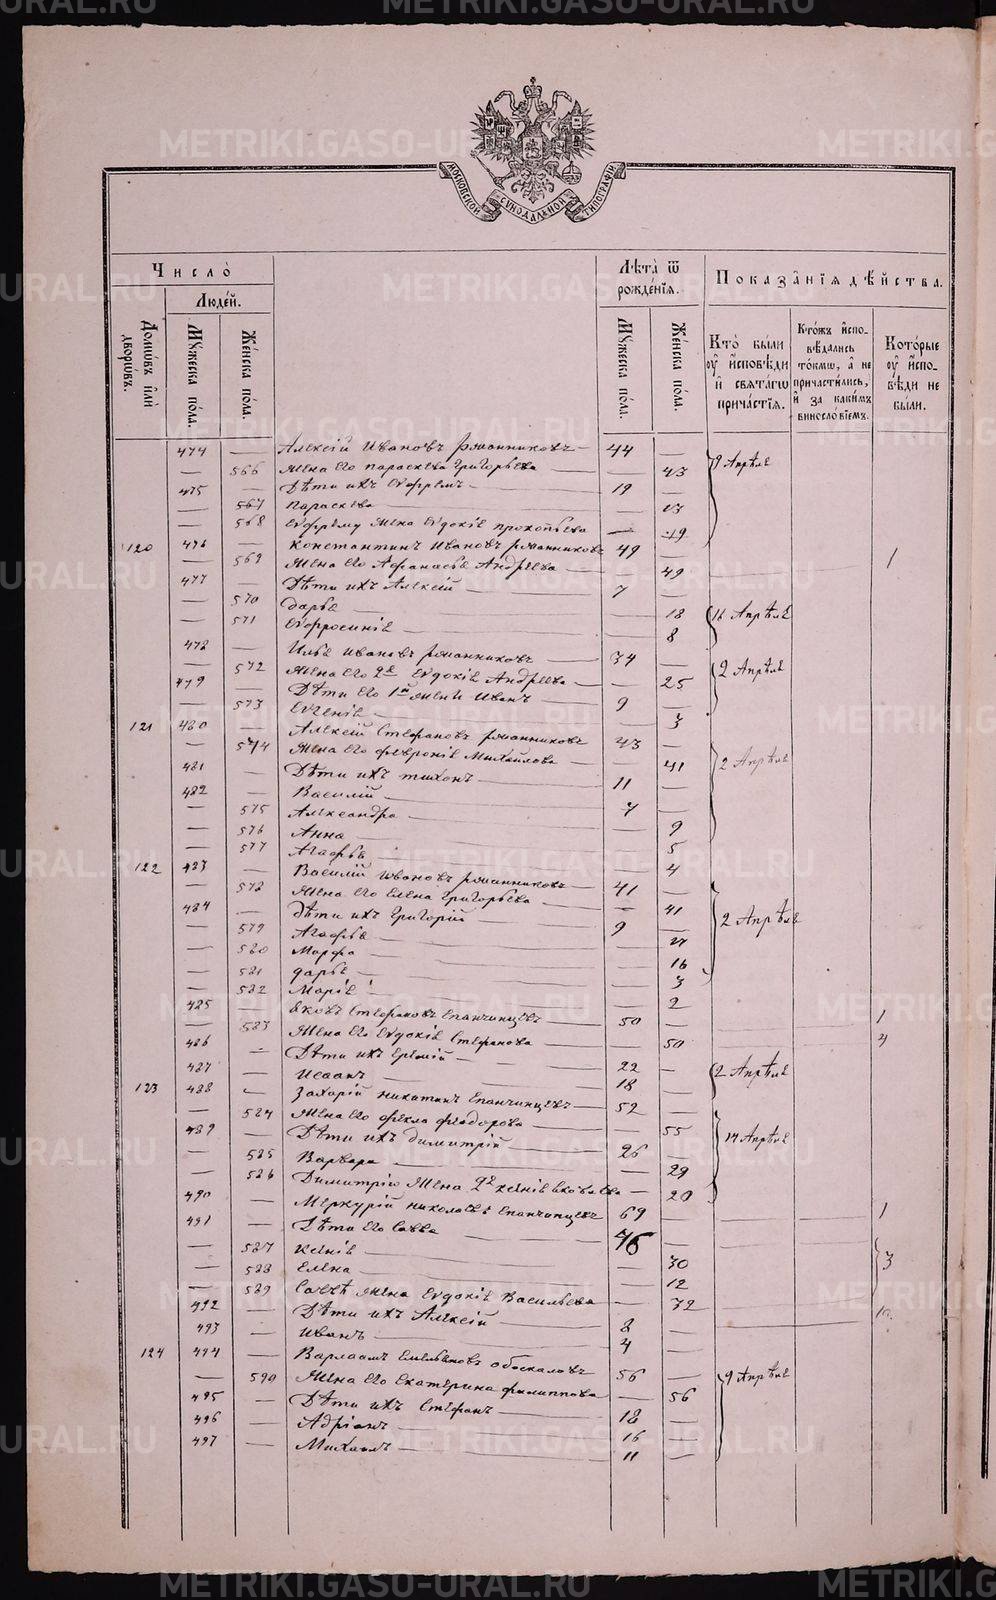 МОСКОВСКОЙ СѴНОДАЛЬНОЙ ТИПОГРАФІИ
Число̀
Людей.
Домѡвъ или дворѡвъ.
Мꙋжеска по́ла.
Же́нска по́ла.
Лѣта̀ ѿ рожде́нїѧ.
Мꙋжеска по́ла.
Же́нска по́ла.
Показа̑нїѧ дѣ́йства.
Кто̀ бы́ли оу҆ и҆́сповѣди и҆ свѧта́гѡ прича́стїѧ.
Кто́жъ и҆спо-вѣ́дались то́кмѡ, а҆ не причасти́лись, и҆ за каки́мъ винослові́емъ.
Кото́рые оу҆ и҆спо-вѣди не бы́ли.
474 — Алексій Ивановъ Рожанниковъ — 44 — 9 Апрѣля
— 566 Жена его Параскева Григорьева — — 43
475 — Дѣти ихъ Евфремъ — 19 —
— 567 Параскева — — 13
— 568 Евфрему жена Евдокія Прокопьева — — 19
120 476 — Константинъ Ивановъ Рожанниковъ 49 — 1
— 569 Жена его Афанасья Андреева — — 49
477 — Дѣти ихъ Алексій — 7 —
— 570 Дарья — — 18 16 Апрѣля
— 571 Евфросинія — — 8
478 — Илья Ивановъ Рожанниковъ — 34 — 2 Апрѣля
— 572 Жена его 2я Евдокія Андреева — — 25
479 — Дѣти его 1й жены Иванъ — 9 —
— 573 Евгенія — — 3
121 480 — Алексій Стефановъ Рожанниковъ 43 — 2 Апрѣля
— 574 Жена его Феvронія Михайлова — — 41
481 — Дѣти ихъ Тихонъ — 11 —
482 — Василій — 7 —
— 575 Александра — — 9
— 576 Анна — — 5
— 577 Агафья — — 4
122 483 — Василій Ивановъ Рожанниковъ — 41 — 2 Апрѣля
— 578 Жена его Елена Григорьева — — 41
484 — Дѣти ихъ Григорій 9 —
— 579 Агафья — —
— 580 Марфа — — 16
— 581 Дарья — — 3
— 582 Марія — — 2
485 — Яковъ Стефановъ Епанчинцевъ — 50 — 1
— 583 Жена его Евдокія Стефанова — — 50
486 — Дѣти ихъ Еремій — 22 — 2 Апрѣля
487 — Исаакъ — 18 —
123 488 — Захарій Никитинъ Епанчинцевъ — 52 — 14 Апрѣля
— 584 Жена его Фекла Феодорова — — 55
489 — Дѣти ихъ Димитрій 26 —
— 585 Варвара — — 29
— 586 Димитрію жена 2я Ксенія Яковлева — — 20
490 — Меркурій Николаевъ Епанчинцевъ 69 — 1
491 — Дѣти его Савва —
— 587 Ксенія — — 30 3
— 588 Елена — — 12
— 589 Саввѣ жена Евдокія Васильева — — 32
492 — Дѣти ихъ Алексій — 8 —
493 — Иванъ — 4 —
124 494 — Варлаамъ Емельяновъ Обоскаловъ 56 — 9 Апрѣля
— 590 Жена его Екатерина Филиппова — — 56
495 — Дѣти ихъ Стефанъ — 18 —
496 — Адріанъ — 16 —
497 — Михаилъ — 11 —
METRIKI.GASO-URAL.RU